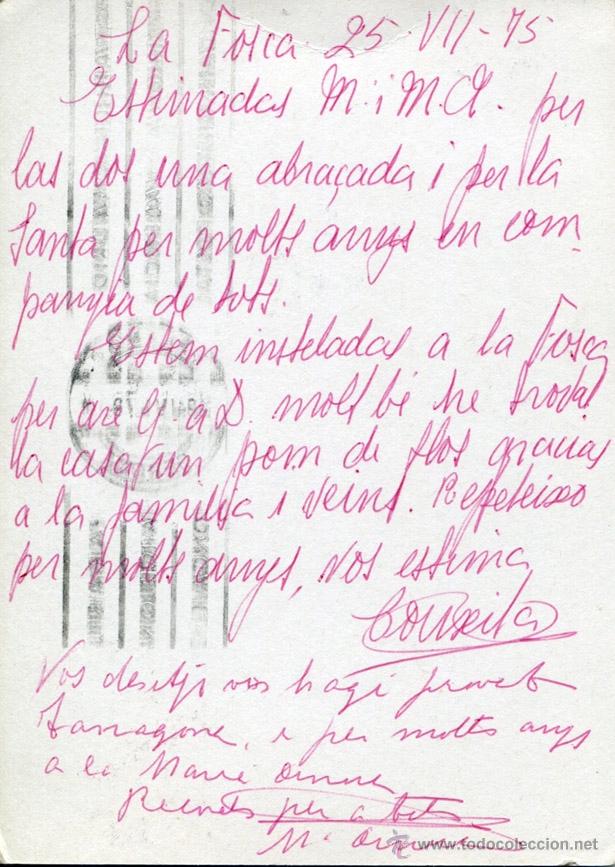 La Fosca 25-VII-75
Estimadas M. i M.A. per
las dos una abraçada i per la
Santa per molts anys en com-
panyia de tots.
Estem insteladas a la Fosca
per are G. a D. molt bé he trobat
la casa un pom de flos gracias
a la familia i veins. Repeteixo
per molts anys, vos estima
Conxita
Vos desitjo vos hagi provat
Tarragona, i per molts anys
a la Maria
Records per a tots
Mª
www.todocoleccion.net